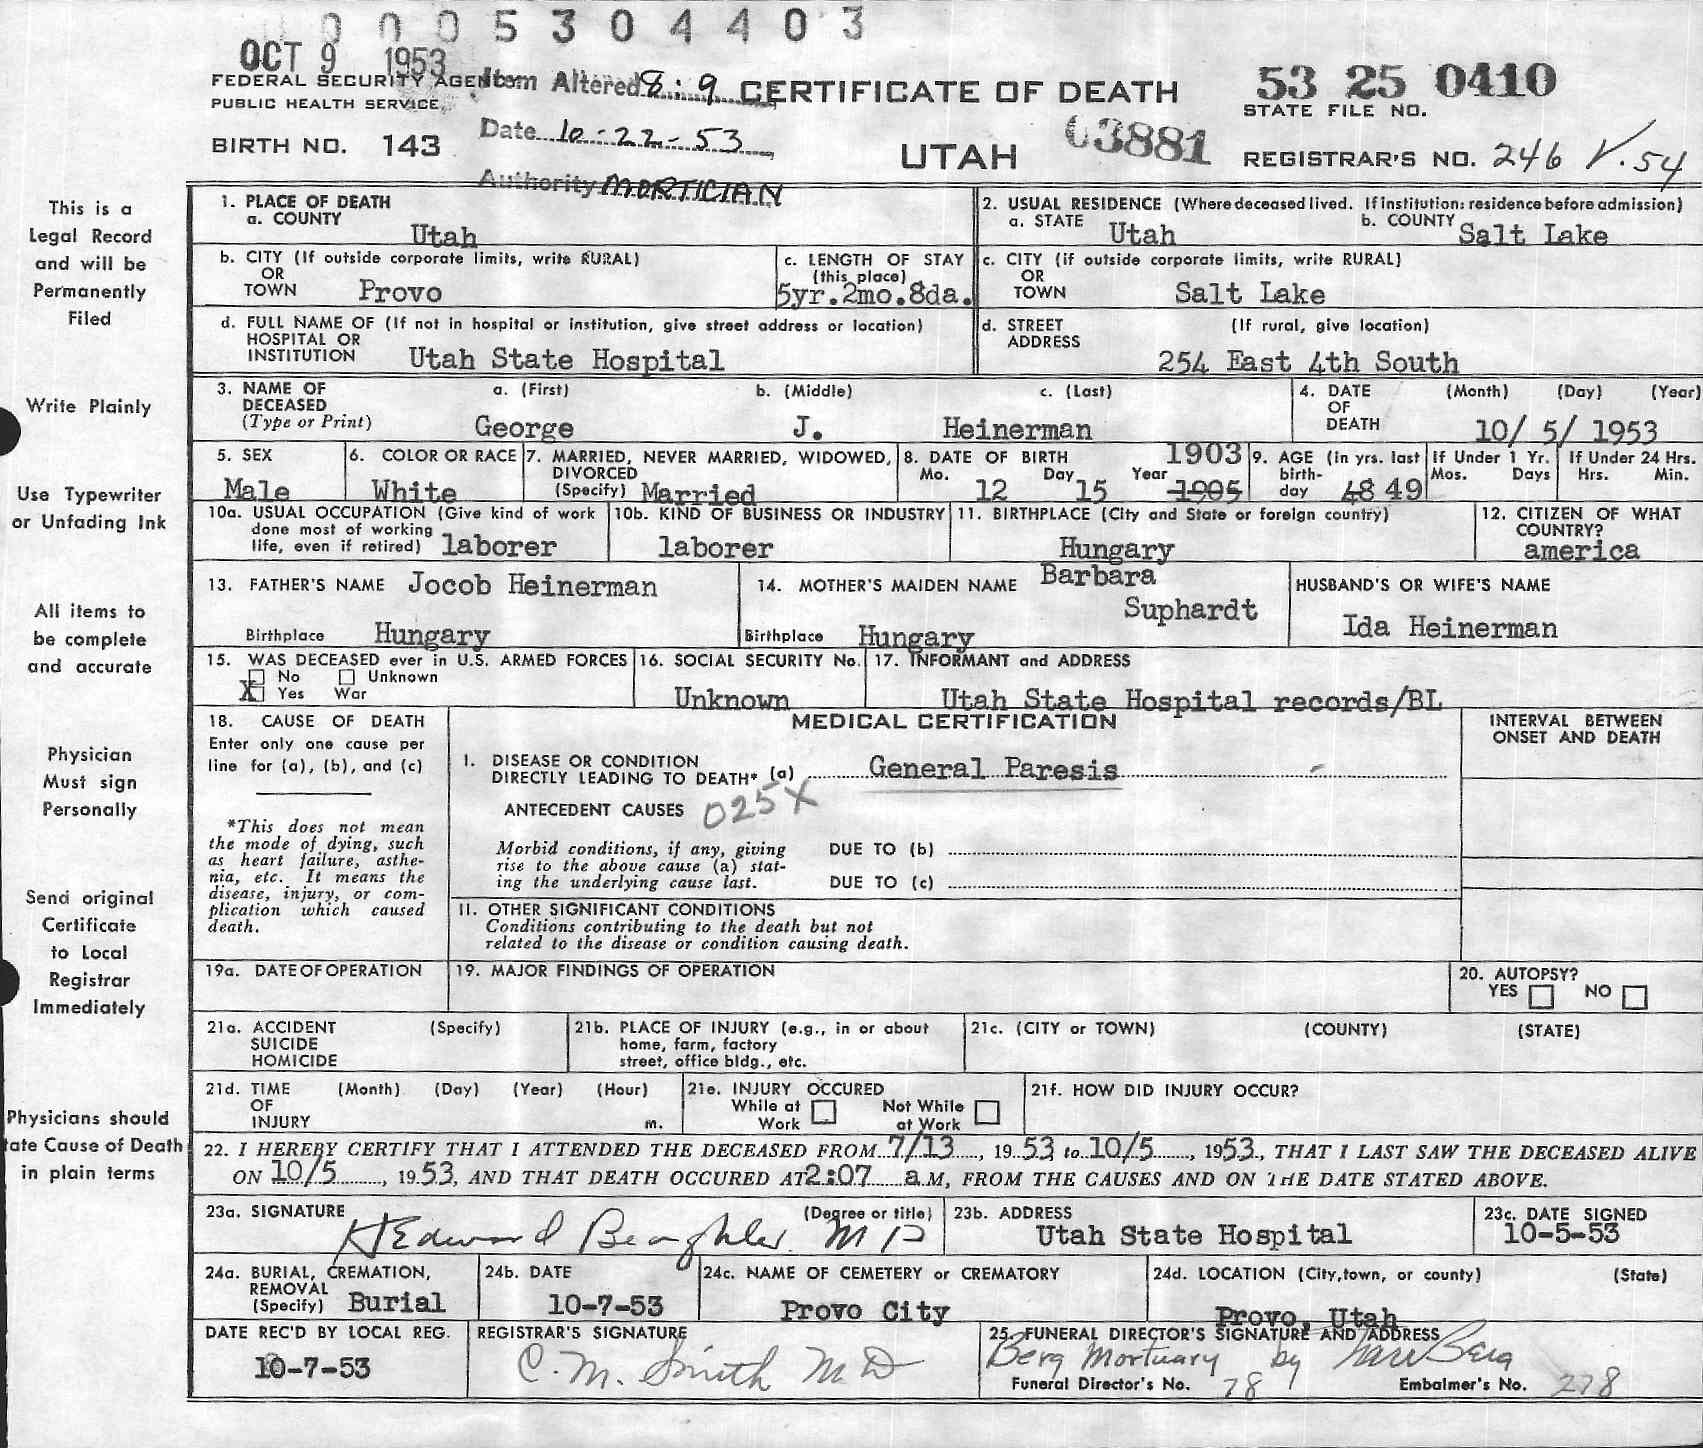 0005304403
OCT 9 1953
FEDERAL SECURITY AGENCY Item Altered 8:9 CERTIFICATE OF DEATH 53 25 0410
PUBLIC HEALTH SERVICE STATE FILE NO.
BIRTH NO. 143 Date 10-22-53 UTAH 03881 REGISTRAR'S NO. 246 V.54
Authority MORTICIAN
This is a
Legal Record
and will be
Permanently
Filed
Write Plainly
Use Typewriter
or Unfading Ink
All items to
be complete
and accurate
Physician
Must sign
Personally
Send original
Certificate
to Local
Registrar
Immediately
Physicians should
tate Cause of Death
in plain terms
1. PLACE OF DEATH
a. COUNTY Utah
2. USUAL RESIDENCE (Where deceased lived. If institution: residence before admission)
a. STATE Utah b. COUNTY Salt Lake
b. CITY (If outside corporate limits, write RURAL)
OR
TOWN Provo
c. LENGTH OF STAY
(this place)
5yr.2mo.8da.
c. CITY (if outside corporate limits, write RURAL)
OR
TOWN Salt Lake
d. FULL NAME OF (If not in hospital or institution, give street address or location)
HOSPITAL OR
INSTITUTION Utah State Hospital
d. STREET (If rural, give location)
ADDRESS
254 East 4th South
3. NAME OF a. (First) b. (Middle) c. (Last)
DECEASED
(Type or Print) George J. Heinerman
4. DATE (Month) (Day) (Year)
OF
DEATH 10/ 5/ 1953
5. SEX
Male
6. COLOR OR RACE
White
7. MARRIED, NEVER MARRIED, WIDOWED,
DIVORCED
(Specify) Married
8. DATE OF BIRTH 1903
Mo. Day Year
12 15 1905
9. AGE (in yrs. last
birth-
day 48 49
If Under 1 Yr.
Mos. Days
If Under 24 Hrs.
Hrs. Min.
10a. USUAL OCCUPATION (Give kind of work
done most of working
life, even if retired) laborer
10b. KIND OF BUSINESS OR INDUSTRY
laborer
11. BIRTHPLACE (City and State or foreign country)
Hungary
12. CITIZEN OF WHAT
COUNTRY?
america
13. FATHER'S NAME Jocob Heinerman
Birthplace Hungary
14. MOTHER'S MAIDEN NAME Barbara
Suphardt
Birthplace Hungary
HUSBAND'S OR WIFE'S NAME
Ida Heinerman
15. WAS DECEASED ever in U.S. ARMED FORCES
No Unknown
X Yes War
16. SOCIAL SECURITY No.
Unknown
17. INFORMANT and ADDRESS
Utah State Hospital records/BL
18. CAUSE OF DEATH
Enter only one cause per
line for (a), (b), and (c)
*This does not mean
the mode of dying, such
as heart failure, asthe-
nia, etc. It means the
disease, injury, or com-
plication which caused
death.
MEDICAL CERTIFICATION
INTERVAL BETWEEN
ONSET AND DEATH
I. DISEASE OR CONDITION
DIRECTLY LEADING TO DEATH* (a) General Paresis
ANTECEDENT CAUSES 025X
Morbid conditions, if any, giving
rise to the above cause (a) stat-
ing the underlying cause last.
DUE TO (b)
DUE TO (c)
II. OTHER SIGNIFICANT CONDITIONS
Conditions contributing to the death but not
related to the disease or condition causing death.
19a. DATE OF OPERATION
19. MAJOR FINDINGS OF OPERATION
20. AUTOPSY?
YES NO
21a. ACCIDENT (Specify)
SUICIDE
HOMICIDE
21b. PLACE OF INJURY (e.g., in or about
home, farm, factory
street, office bldg., etc.
21c. (CITY or TOWN) (COUNTY) (STATE)
21d. TIME (Month) (Day) (Year) (Hour)
OF
INJURY m.
21e. INJURY OCCURED
While at Not While
Work at Work
21f. HOW DID INJURY OCCUR?
22. I HEREBY CERTIFY THAT I ATTENDED THE DECEASED FROM 7/13, 19 53 to 10/5, 1953, THAT I LAST SAW THE DECEASED ALIVE
ON 10/5, 19 53, AND THAT DEATH OCCURED AT 2:07 a M, FROM THE CAUSES AND ON THE DATE STATED ABOVE.
23a. SIGNATURE (Degree or title)
H Edward Beaghler MD
23b. ADDRESS
Utah State Hospital
23c. DATE SIGNED
10-5-53
24a. BURIAL, CREMATION,
REMOVAL
(Specify) Burial
24b. DATE
10-7-53
24c. NAME OF CEMETERY or CREMATORY
Provo City
24d. LOCATION (City, town, or county) (State)
Provo, Utah
DATE REC'D BY LOCAL REG.
10-7-53
REGISTRAR'S SIGNATURE
C. M. Smith MD
25. FUNERAL DIRECTOR'S SIGNATURE AND ADDRESS
Berg Mortuary by Berg
Funeral Director's No. 78 Embalmer's No. 278